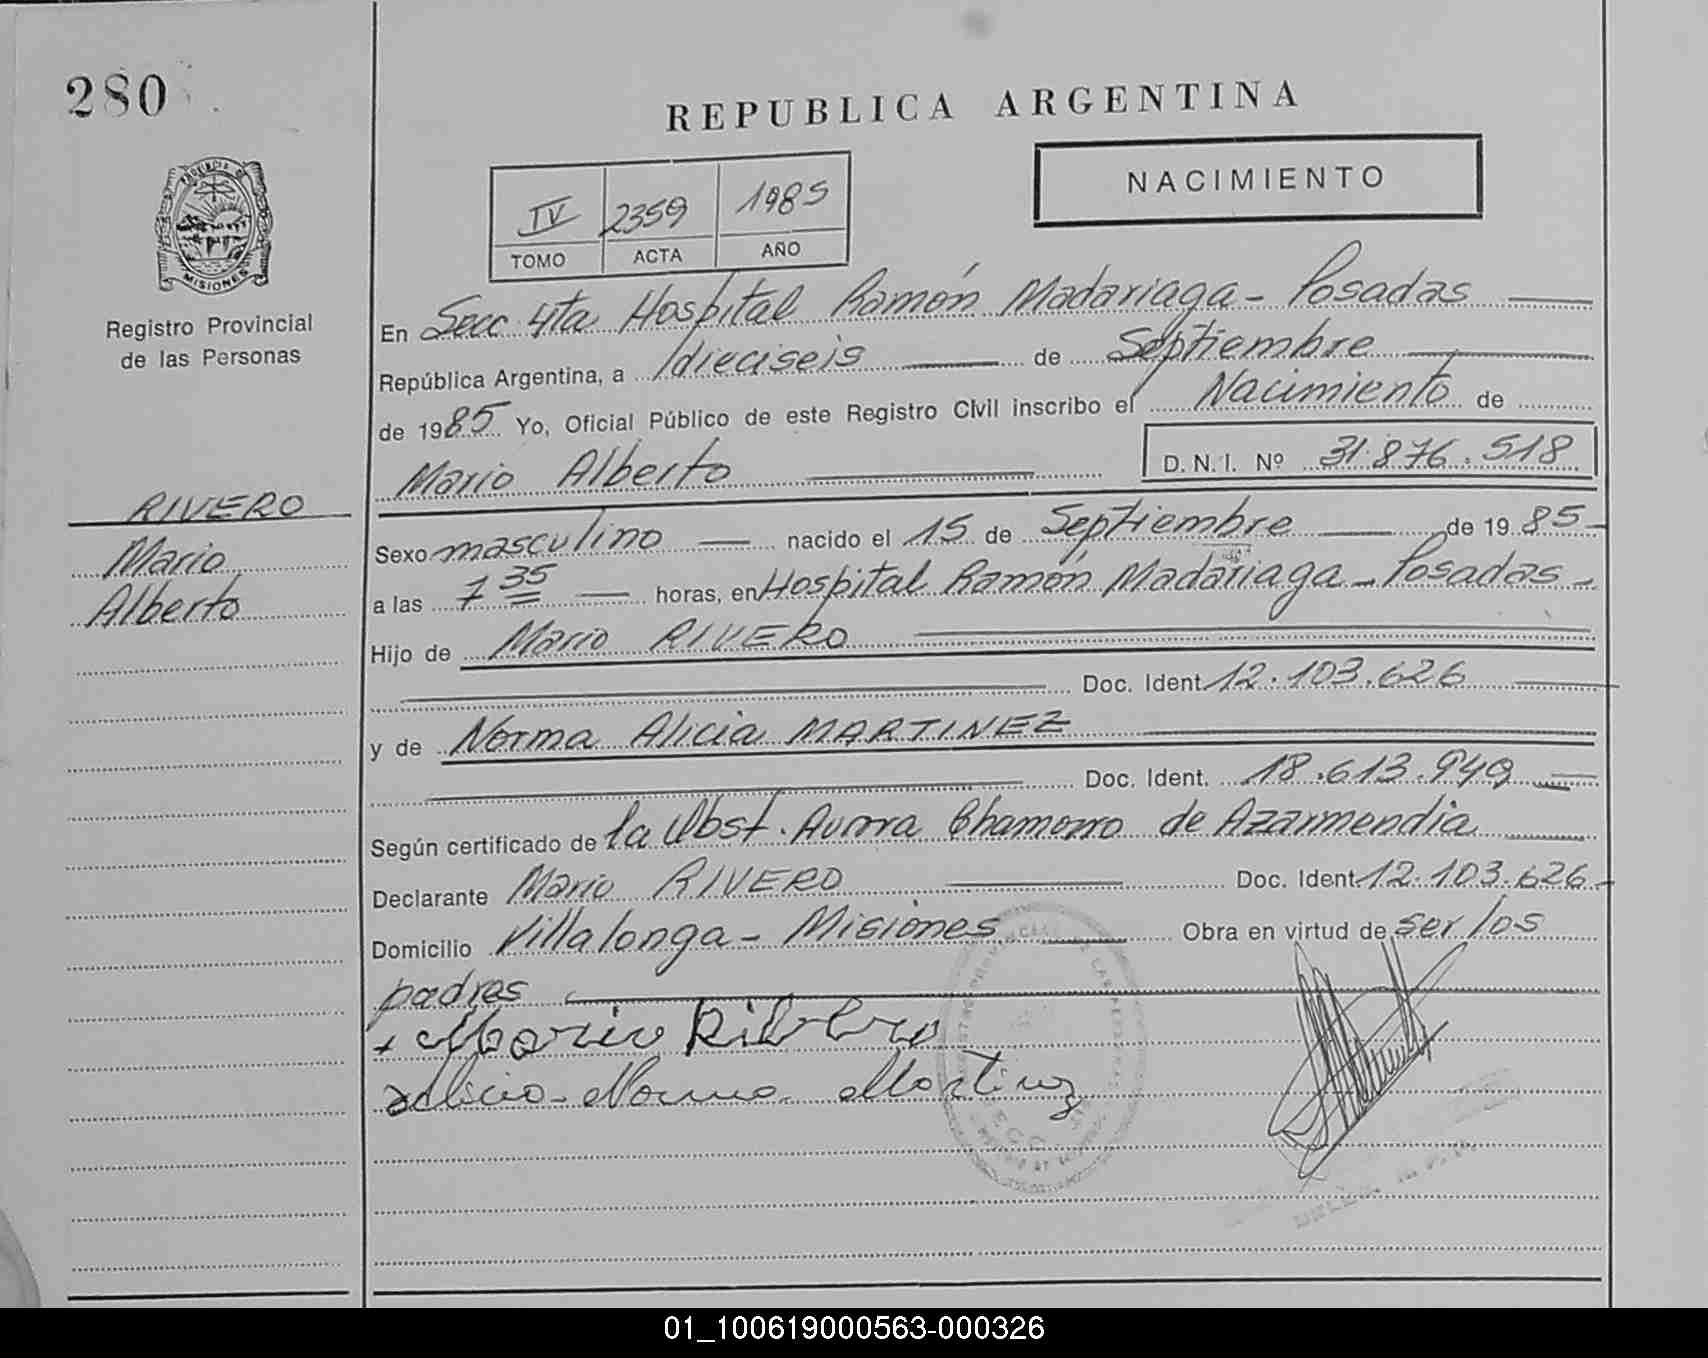 280
REPUBLICA ARGENTINA
NACIMIENTO
IV 2359 1985
TOMO ACTA AÑO
PROVINCIA DE
MISIONES
Registro Provincial
de las Personas
En Secc 4ta Hospital Ramón Madariaga - Posadas
República Argentina, a dieciseis de Septiembre
de 1985 Yo, Oficial Público de este Registro Civil inscribo el Nacimiento de
Mario Alberto D.N.I. Nº 31.876.518
RIVERO
Mario
Alberto
Sexo masculino nacido el 15 de Septiembre de 1985
a las 7 35 horas, en Hospital Ramón Madariaga - Posadas -
Hijo de Mario RIVERO
Doc. Ident 12.103.626
y de Norma Alicia MARTINEZ
Doc. Ident. 18.613.949
Según certificado de la Obst. Aurora Chamorro de Azarmendia
Declarante Mario RIVERO Doc. Ident 12.103.626
Domicilio Villalonga - Misiones Obra en virtud de ser los
padres
Mario Ribero
Alicia Norma Martinez
01_100619000563-000326